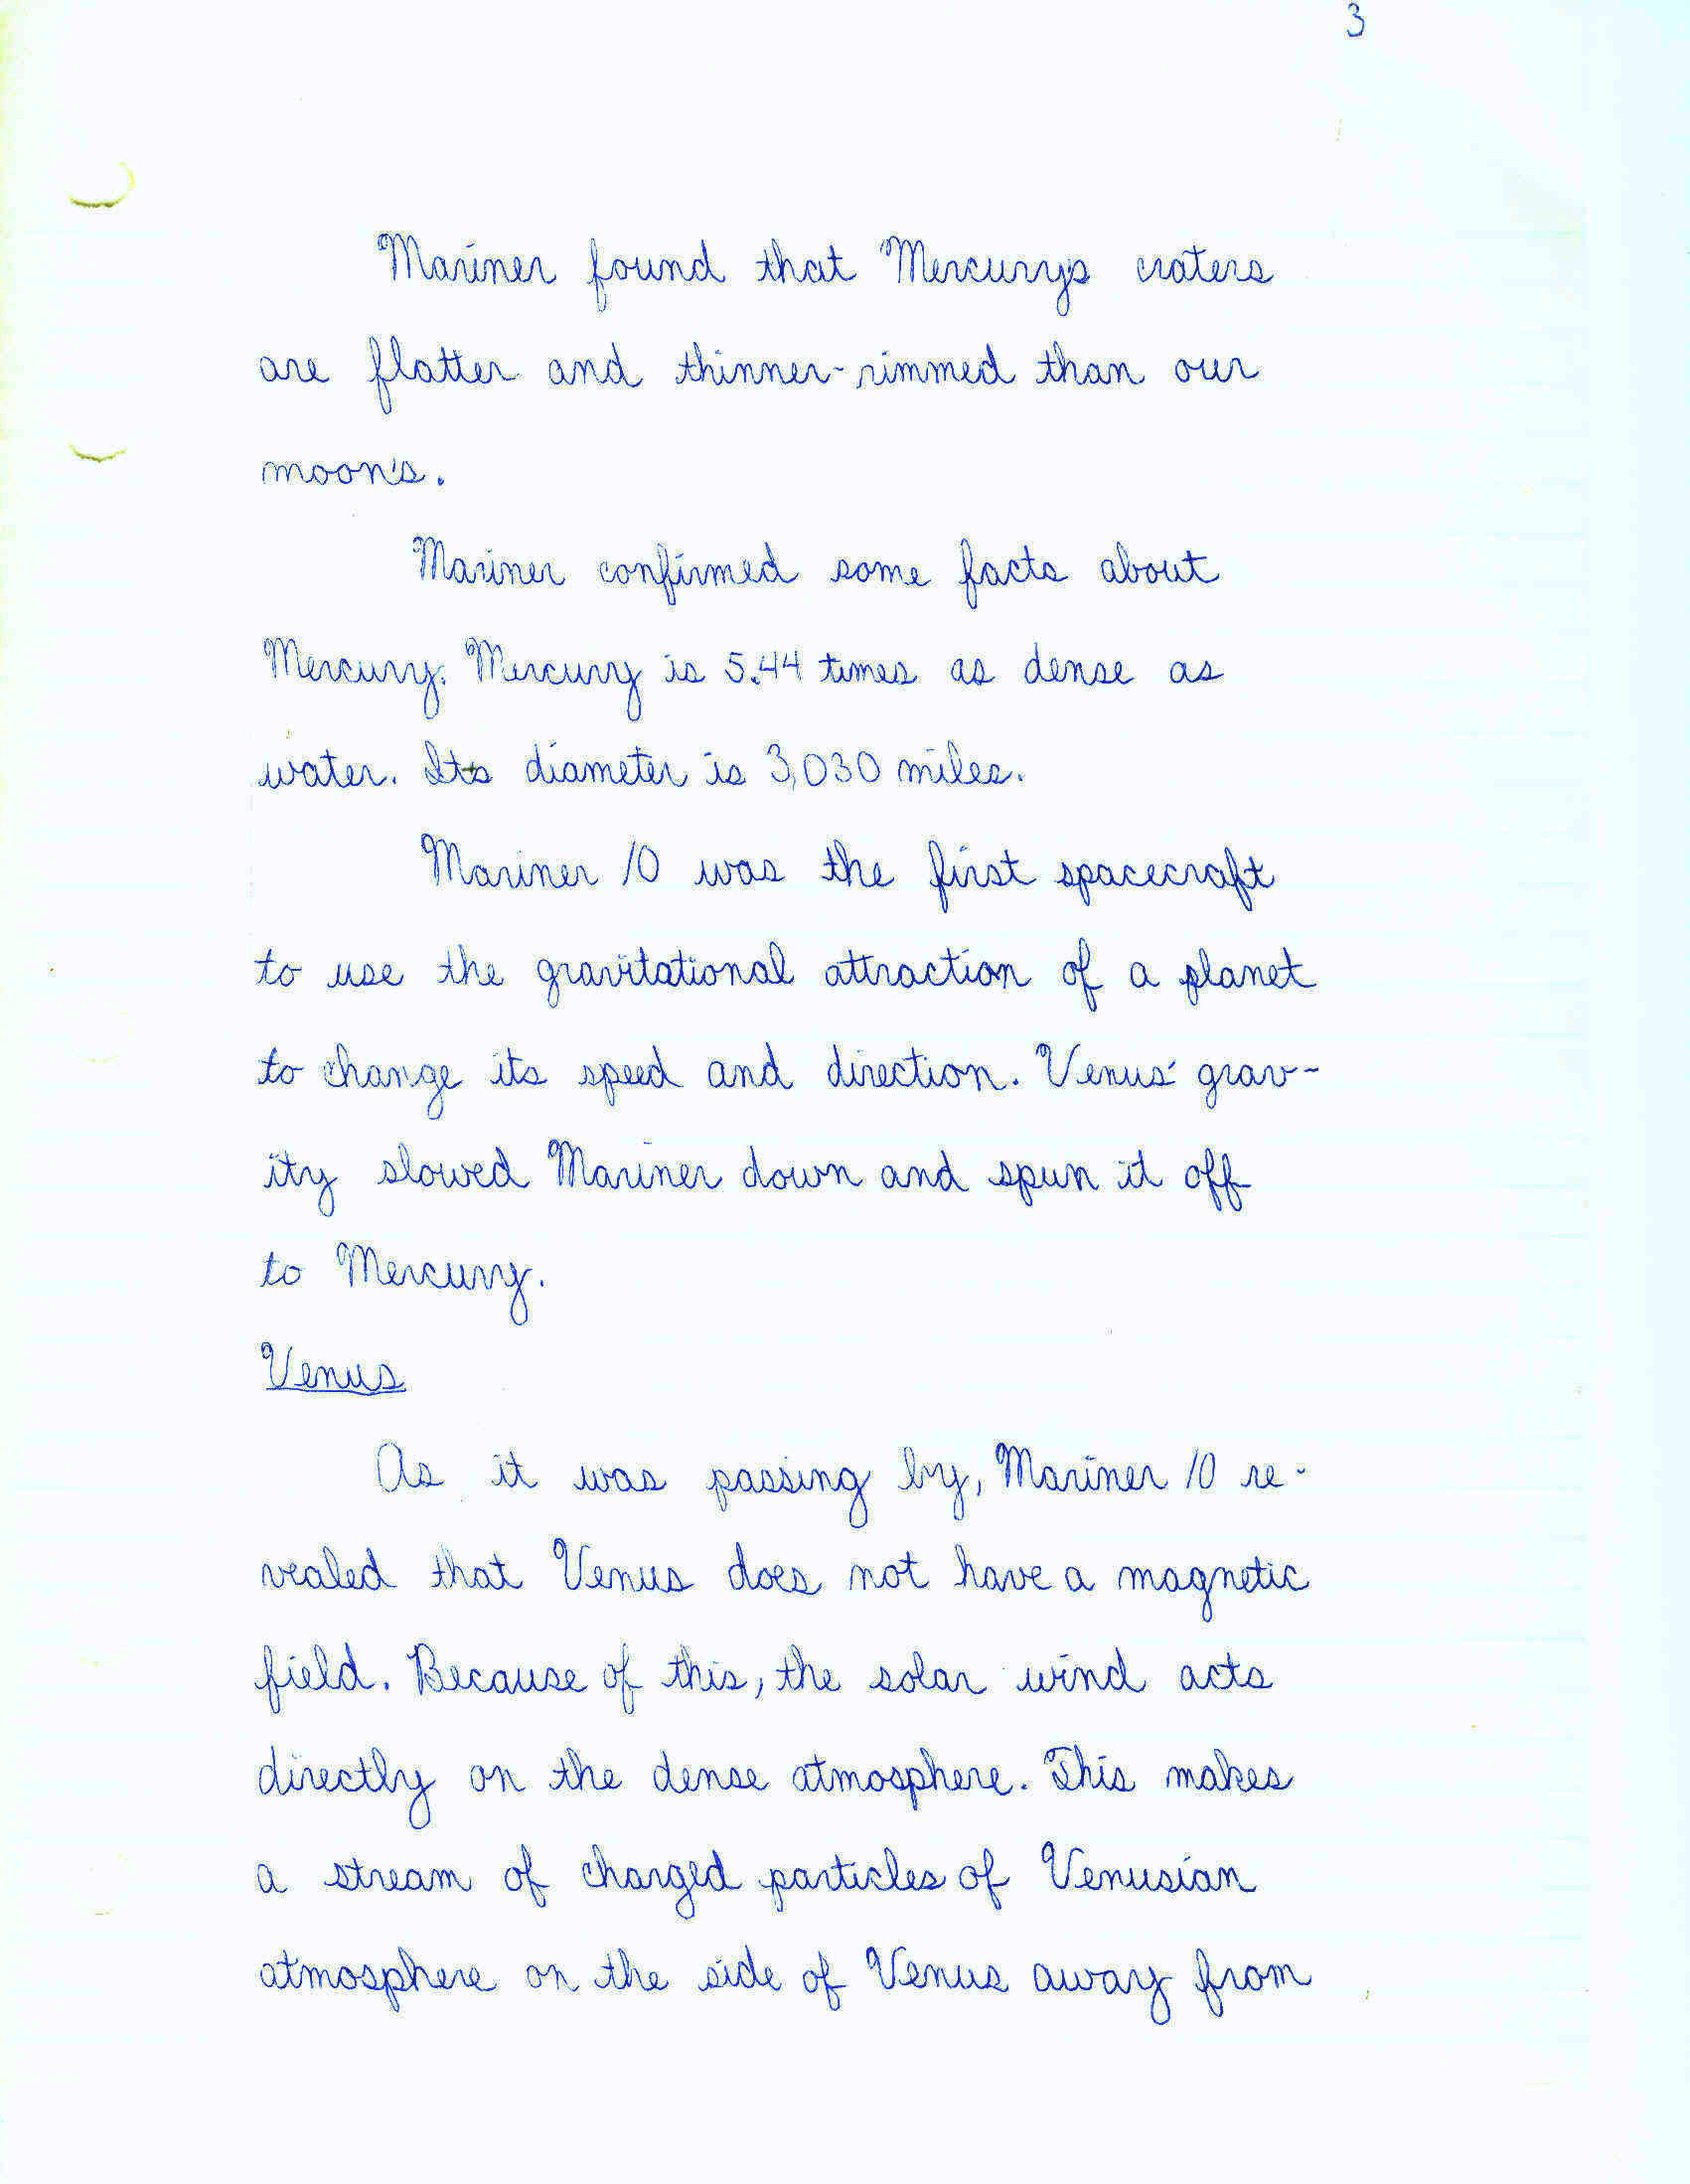 3
Mariner found that Mercury's craters
are flatter and thinner-rimmed than our
moon's.
Mariner confirmed some facts about
Mercury. Mercury is 5.44 times as dense as
water. Its diameter is 3,030 miles.
Mariner 10 was the first spacecraft
to use the gravitational attraction of a planet
to change its speed and direction. Venus' grav-
ity slowed Mariner down and spun it off
to Mercury.
Venus
As it was passing by, Mariner 10 re-
vealed that Venus does not have a magnetic
field. Because of this, the solar wind acts
directly on the dense atmosphere. This makes
a stream of charged particles of Venusian
atmosphere on the side of Venus away from